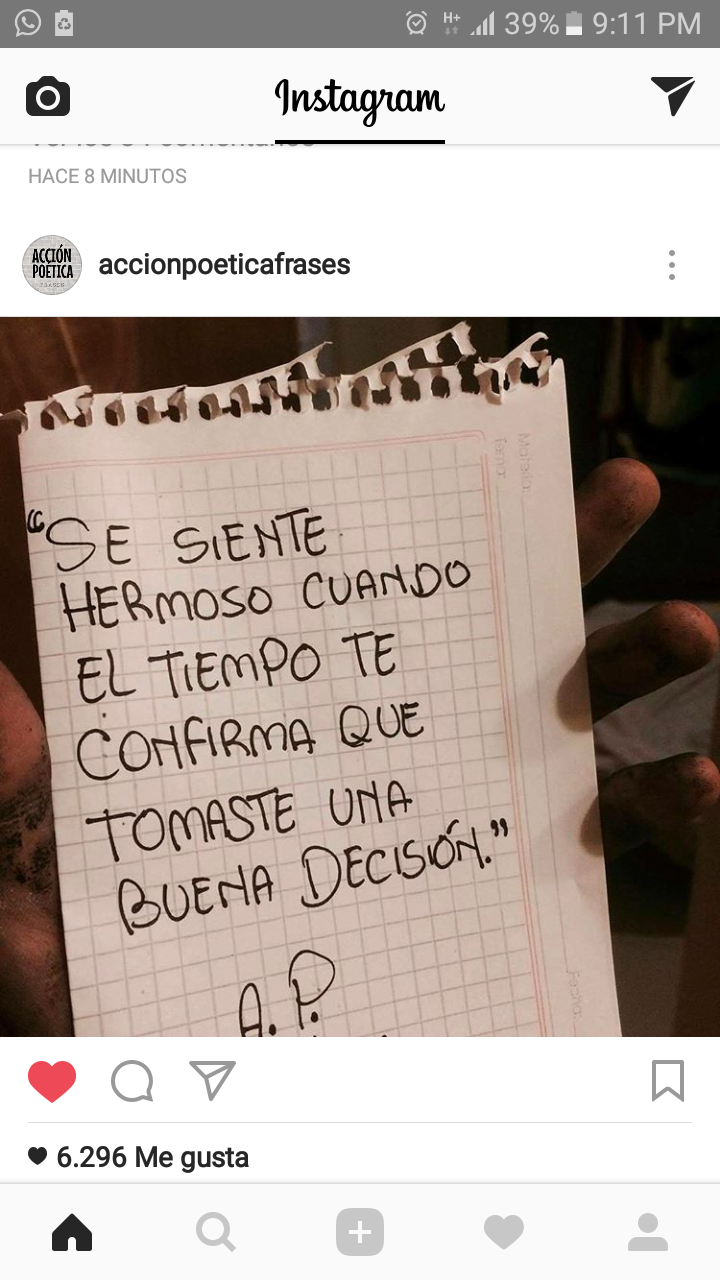 39% 9:11 PM
Instagram
HACE 8 MINUTOS
ACCIÓN
POÉTICA
accionpoeticafrases
"SE SIENTE
HERMOSO CUANDO
EL TIEMPO TE
CONFIRMA QUE
TOMASTE UNA
BUENA DECISIÓN."
A.P.
6.296 Me gusta